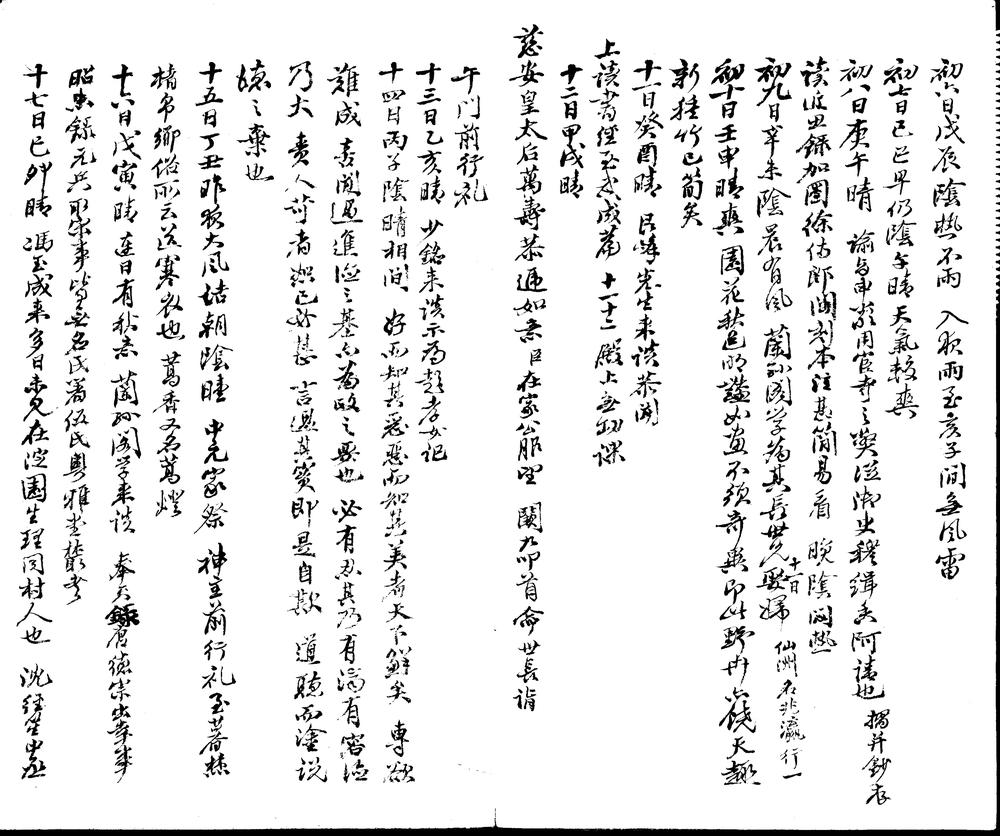 初六日戊辰陰熱不雨 入夜雨至亥子間無風雷
初七日己巳早仍陰午晴天氣較爽
初八日庚午晴 諭旨申嚴用官寺之獎從御史穆緝香阿請也 摺并鈔存
讀近思錄加圈徐侍郎闽刻本注甚簡易看 晚陰悶熱
初九日辛未陰晨有風 蘭孫閣学為其長世兄十一日娶婦 仙洲名兆瀛行一
初十日壬申晴爽 園花秋色明豔如畫不須奇興即此野卉亦饒天趣
新種竹已筍矣
十一日癸酉晴 艮峰先生来談恭聞
上讀書經至武成篇 十一十二 殿上無功課
十二日甲戌晴
慈安皇太后萬壽恭遞如意臣在家公服望 闕九叩首命世長詣
午門前行礼
十三日乙亥晴 少銘来談示為趙孝女記
十四日丙子陰晴相間 好而知其惡惡而知其美者天下鮮矣 專欲
難成 喜聞過進德之基亦為政之要也 必有忍其乃有濟有容德
乃大 責人苛者恕己必甚 言過其實即是自欺 道聽而塗说
德之棄也
十五日丁丑昨夜大風詰朝陰曀 中元家祭 神主前行礼至暮焚
楮帛鄉俗所云送寒衣也 蒿香又名蒿燈
十六日戊寅晴 連日有秋意 蘭孫閣学来談 奉天錄唐德宗出幸事
昭忠錄元兵取宋事皆無名氏著伍氏粵雅堂叢書
十七日己卯晴 馮玉成来多日未見在淀園生理同村人也 沈経笙中丞